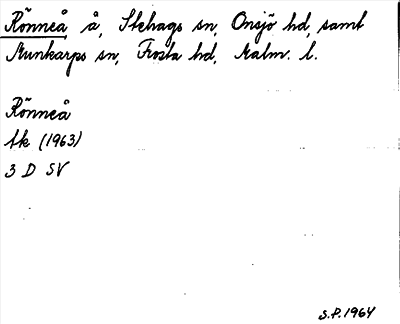 Rönneå å, Stehags sn, Onsjö hd, samt
Munkarps sn, Frosta hd, Malm. l.
Rönneå
tk (1963)
3 D SV
S.P. 1964